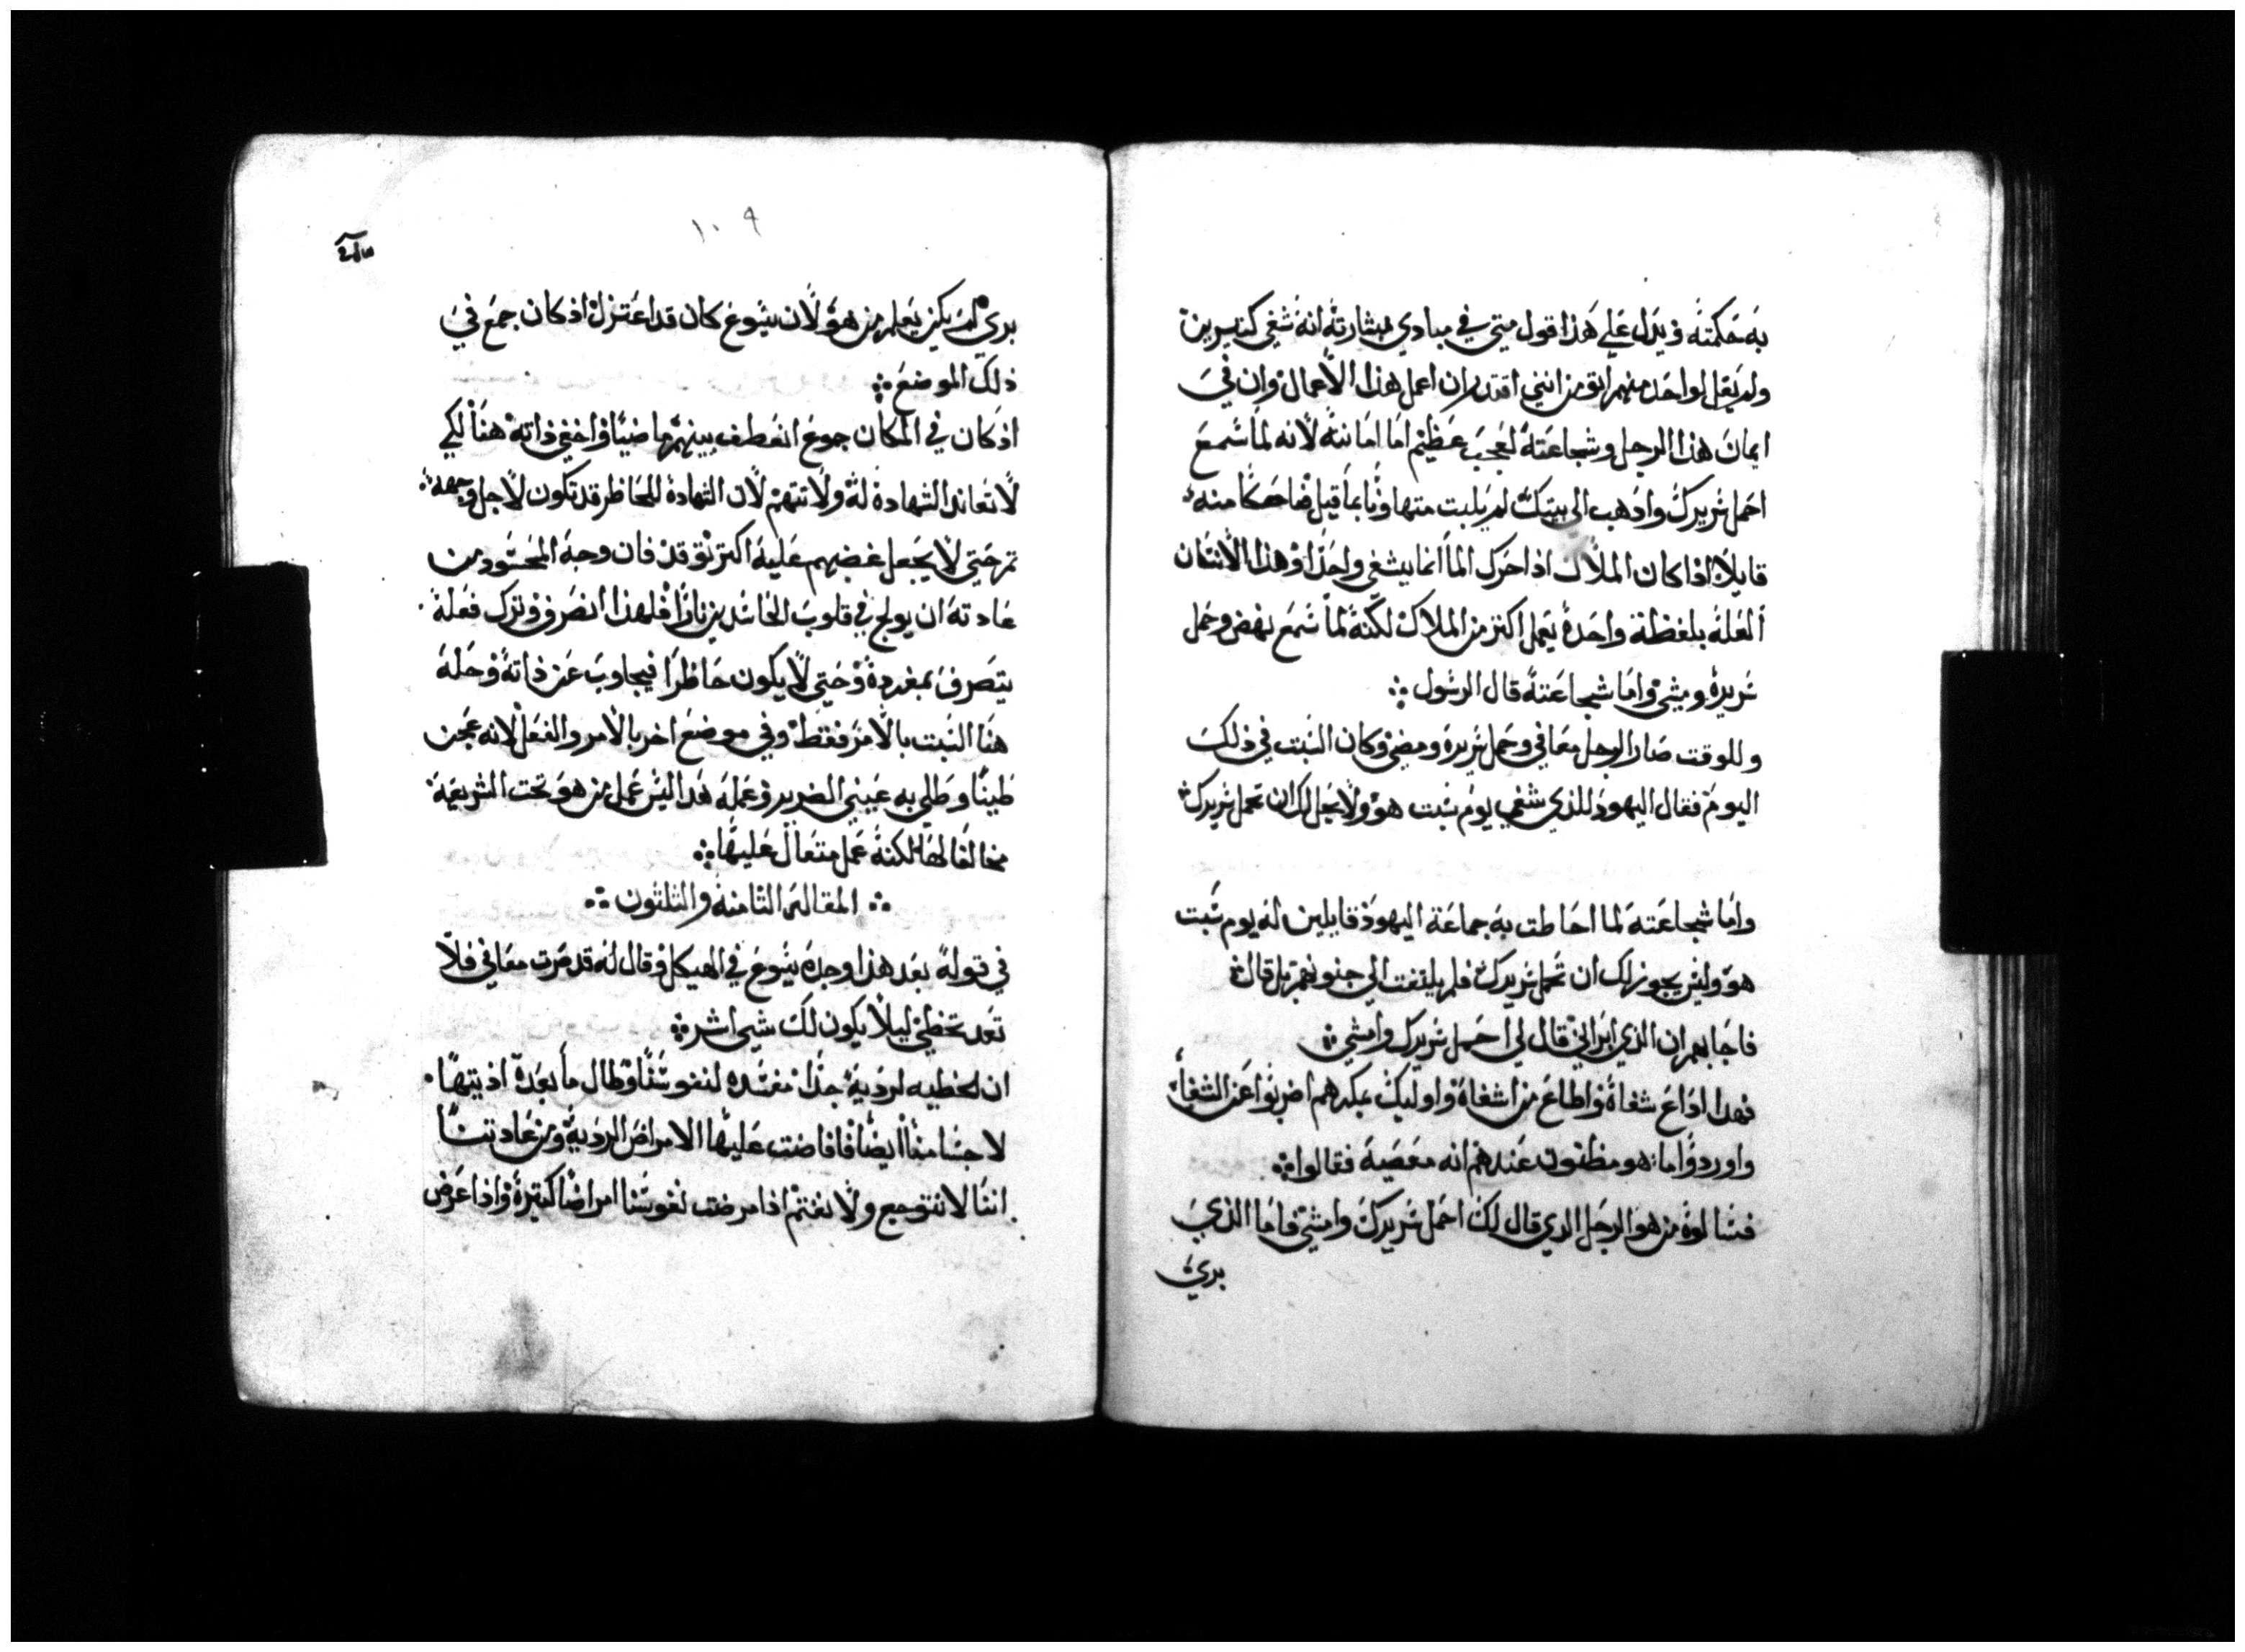 به حكمته ويدل علي هذا قول متي في مبادي بشارته انه شفي كتيرين
ولم يقل لواحد منهم اتومن انني اقتدر ان اعمل هذا الاعمال وان في
ايمان هذا الرجل وشجاعته لعجب عظيم اما امانته لانه لما سمع
احمل سريرك وادهب الى بيتك لم يلبت متهاونا بما قيل ضاحكا منه
قايلا اذا كان الملاك اذا حرك الما انما يشفي واحدا وهذا الانسان
العله بلفظة واحدة يعمل اكتر من الملاك لكنه لما سمع نهض وحمل
سريره ومشي واما شجاعته قال الرسول
وللوقت صار الرجل معافي وحمل سريره ومضي وكان السبت في ذلك
اليوم فقال اليهود للذي شفي يوم سبت هو ولا يحل لك ان تحمل سريرك
واما شجاعته لما احاطت به جماعة اليهود قايلين له يوم سبت
هو وليس يجوز لك ان تحمل سريرك فلم يلتفت الي جنونهم بل قال
فاجابهم ان الذي ابراني قال لي احمل سريرك وامشي
فهدا اداع شفاه واطاع من اشفاه واوليك عبكرهم اضربوا عن الشفا
واوردوا ما هو مظنون عندهم انه معصية فقالوا
فسالوه من هو الرجل الدي قال لك احمل سريرك وامشي فاما الذي
بري
١٠٩
بري لم يكن يعلم من هو لان يسوع كان قد اعتزل اذ كان جمع في
ذلك الموضع
اذ كان في المكان جوع انعطف بينهم ماضيا واخفي ذاته هنا لكي
لا تعاند الشهادة له ولا تتهم لان الشهادة للحاظر قد تكون لاجل وجهه
تم حتي لا يجعل غضبهم عليه اكتر توقد فان وجه المحسود من
عادته ان يولج في قلوب الحاسدين نارا فلهذا انصرف وترك فعله
يتصرف بمفرده وحتي لا يكون حاظرا فيجاوب عن ذاته وحله
هنا السبت بالامر فقط وفي موضع اخر بالامر والفعل لانه عجن
طينا وطلي به عيني الضرير وعمله هدا ليس عمل من هو تحت الشريعة
مخالفا لها لكنه عمل متعال عليها
المقالة التامنة والتلتون
في قوله بعد هذا وجده يسوع في الهيكل وقال له قد صرت معافي فلا
تعد تخطي ليلا يكون لك شي اشر
ان الخطيه لرديه جدا مفسده لنفوسنا وطال ما بعده اذيتها
لاجسامنا ايضا فافاضت عليها الامراض الرديه ومن عادتنا
اننا لا نتوجع ولا نغتم اذا مرضت نفوسنا امراضا كتيرة واذا عرض